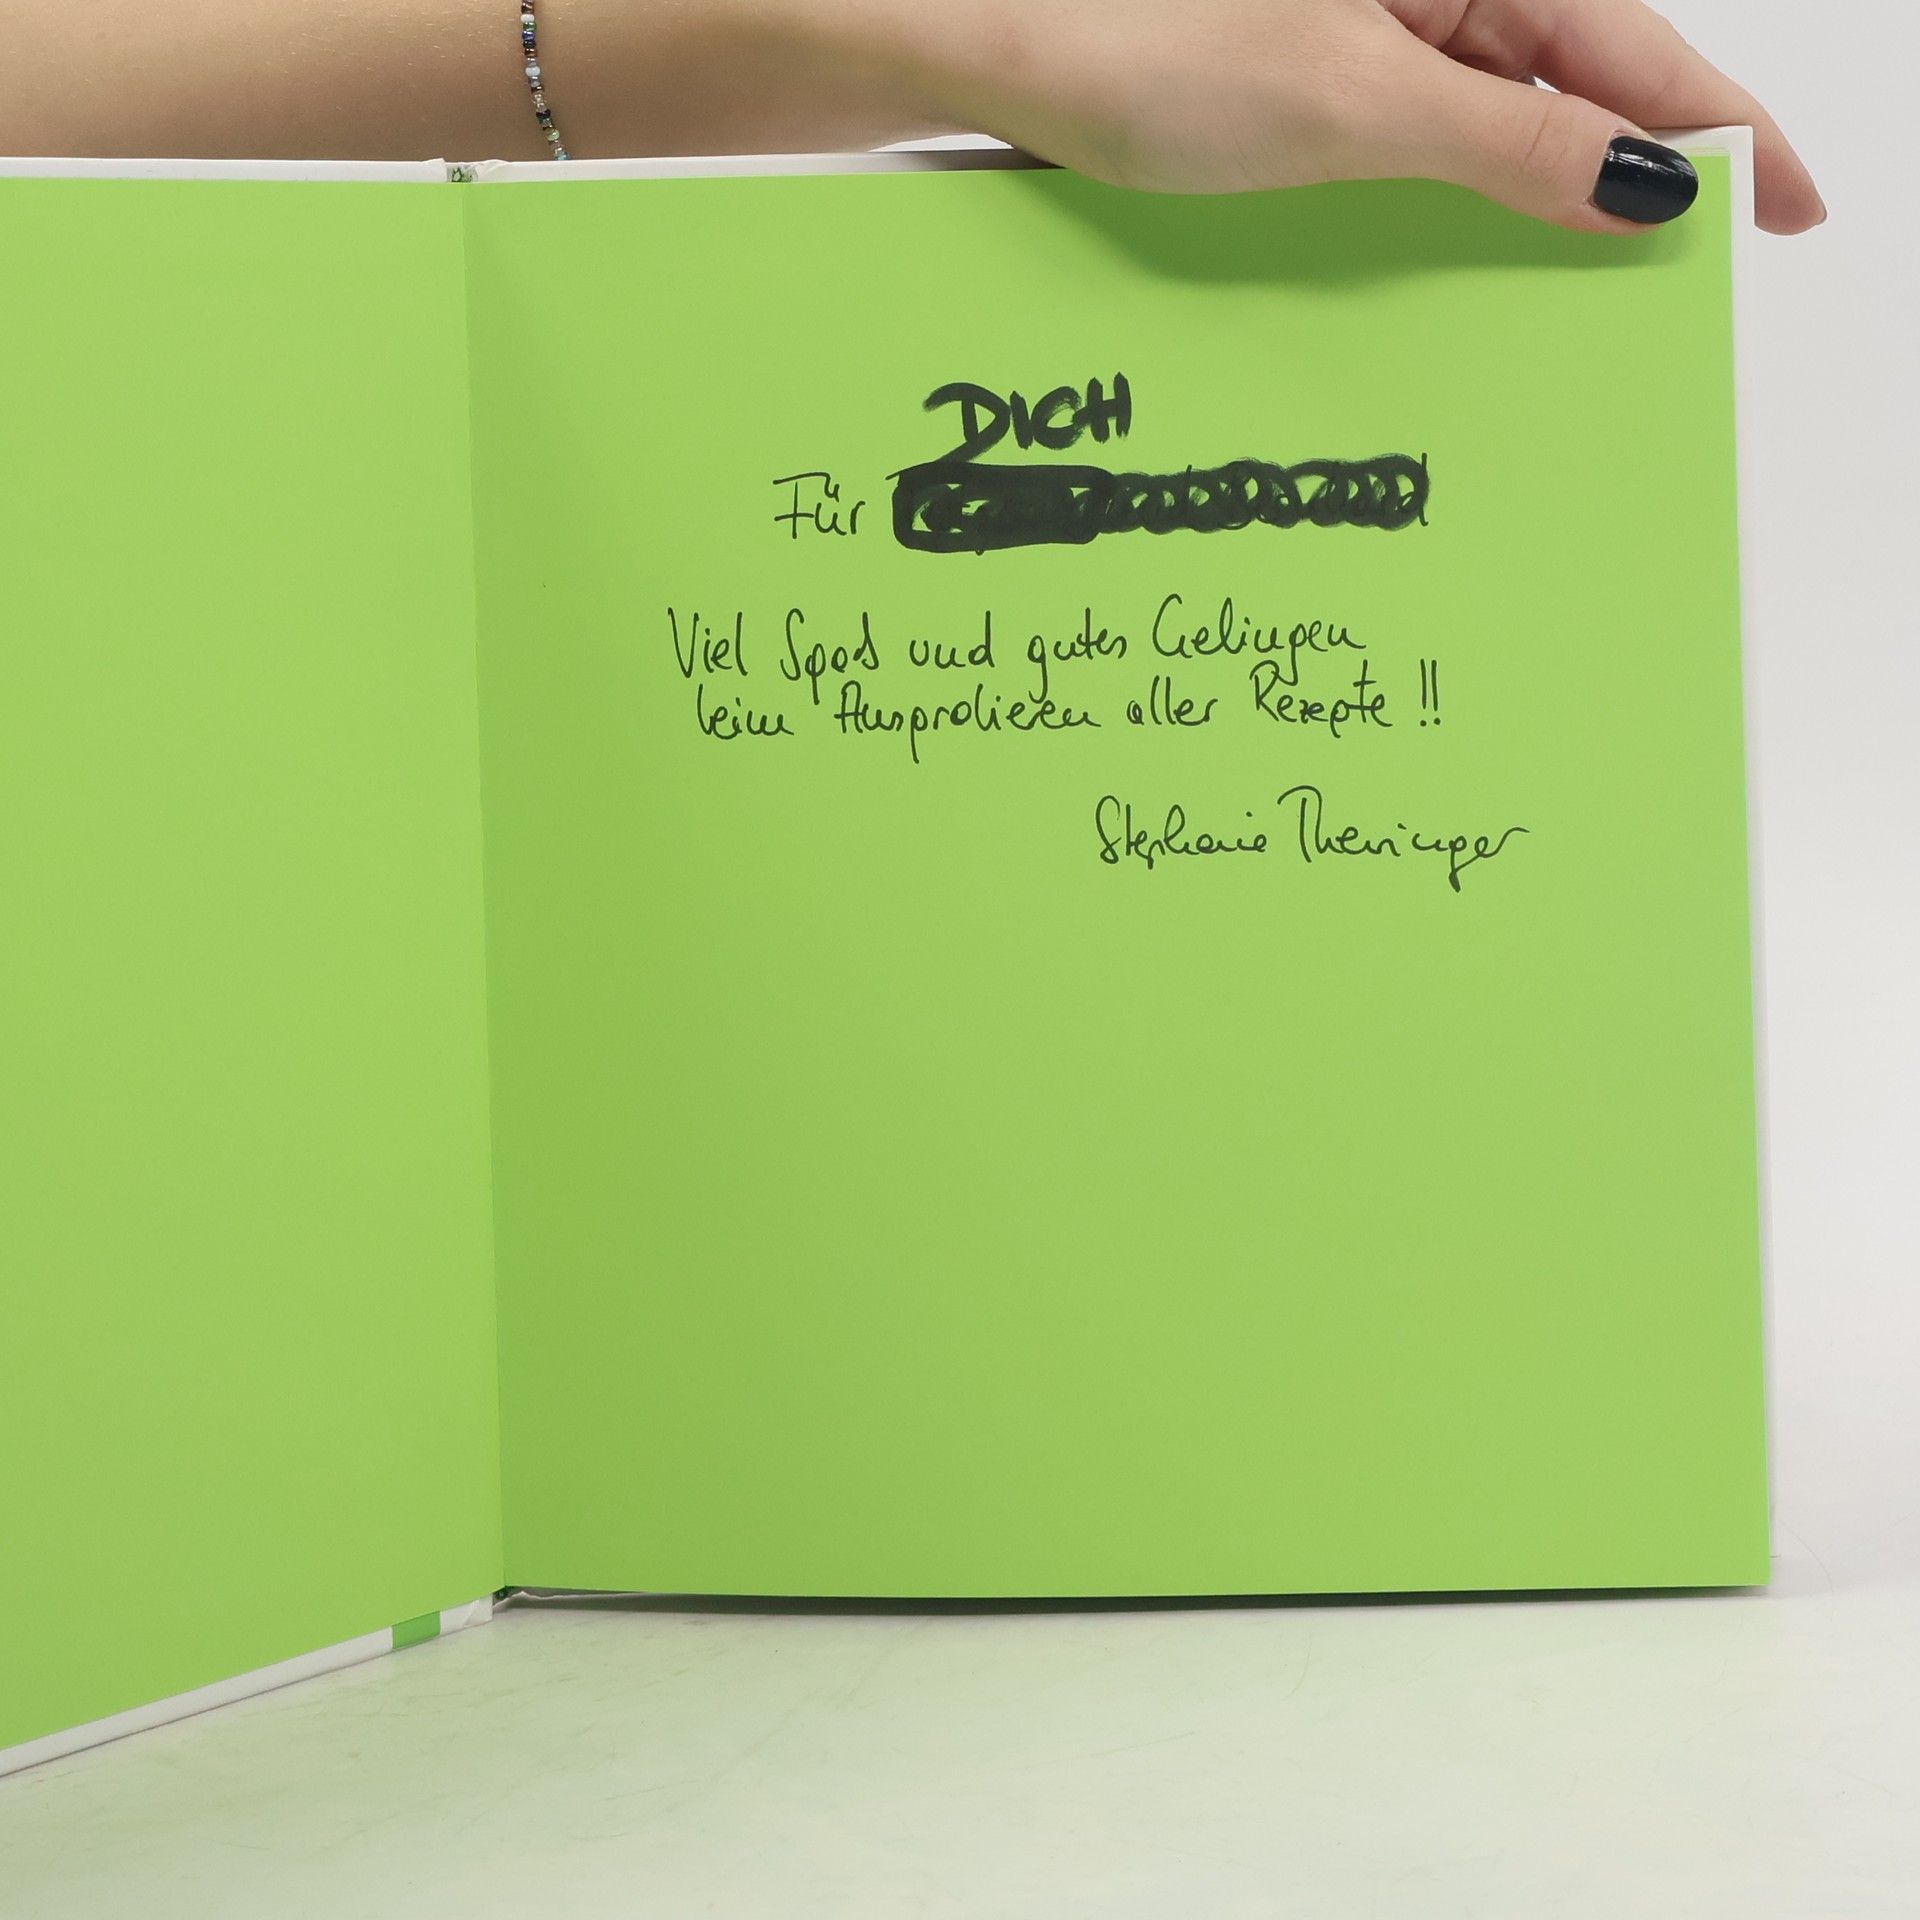 DICH
Für
Viel Spaß und gutes Gelingen
beim Ausprobieren aller Rezepte !!
Stephanie Theninger